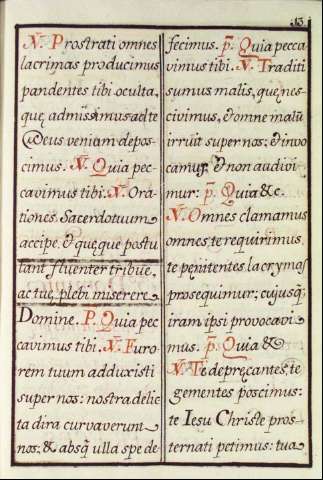 53
℣. Prostrati omnes
lacrimas producimus
pandentes tibi oculta,
quę admissimus ad te
Deus veniam depos-
cimus. ℣. Quia pec-
cavimus tibi. ℣. Ora-
tiones Sacerdotuum
accipe, & quęque postu
lant fluenter tribue,
ac tuę plebi miserere
Domine. P. Quia pec
cavimus tibi. ℣. Furo-
rem tuum adduxisti
super nos: nostra delic
ta dira curvaverunt
nos: & absq ulla spe de
fecimus. p. Quia pecca
vimus tibi. ℣. Traditi
sumus malis, quę nes-
civimus, & omne malū
irruit super nos: & invo
camus & non audivi
mur: p. Quia &c.
℣. Omnes clamamus
omnes te requirimus
te penitentes lacrymas
prosequimur; cujusq;
iram ipsi provocavi
mus. p. Quia &
℣. Te deprecantes, te
gementes poscimus:
te Iesu Christe pros-
ternati petimus: tua